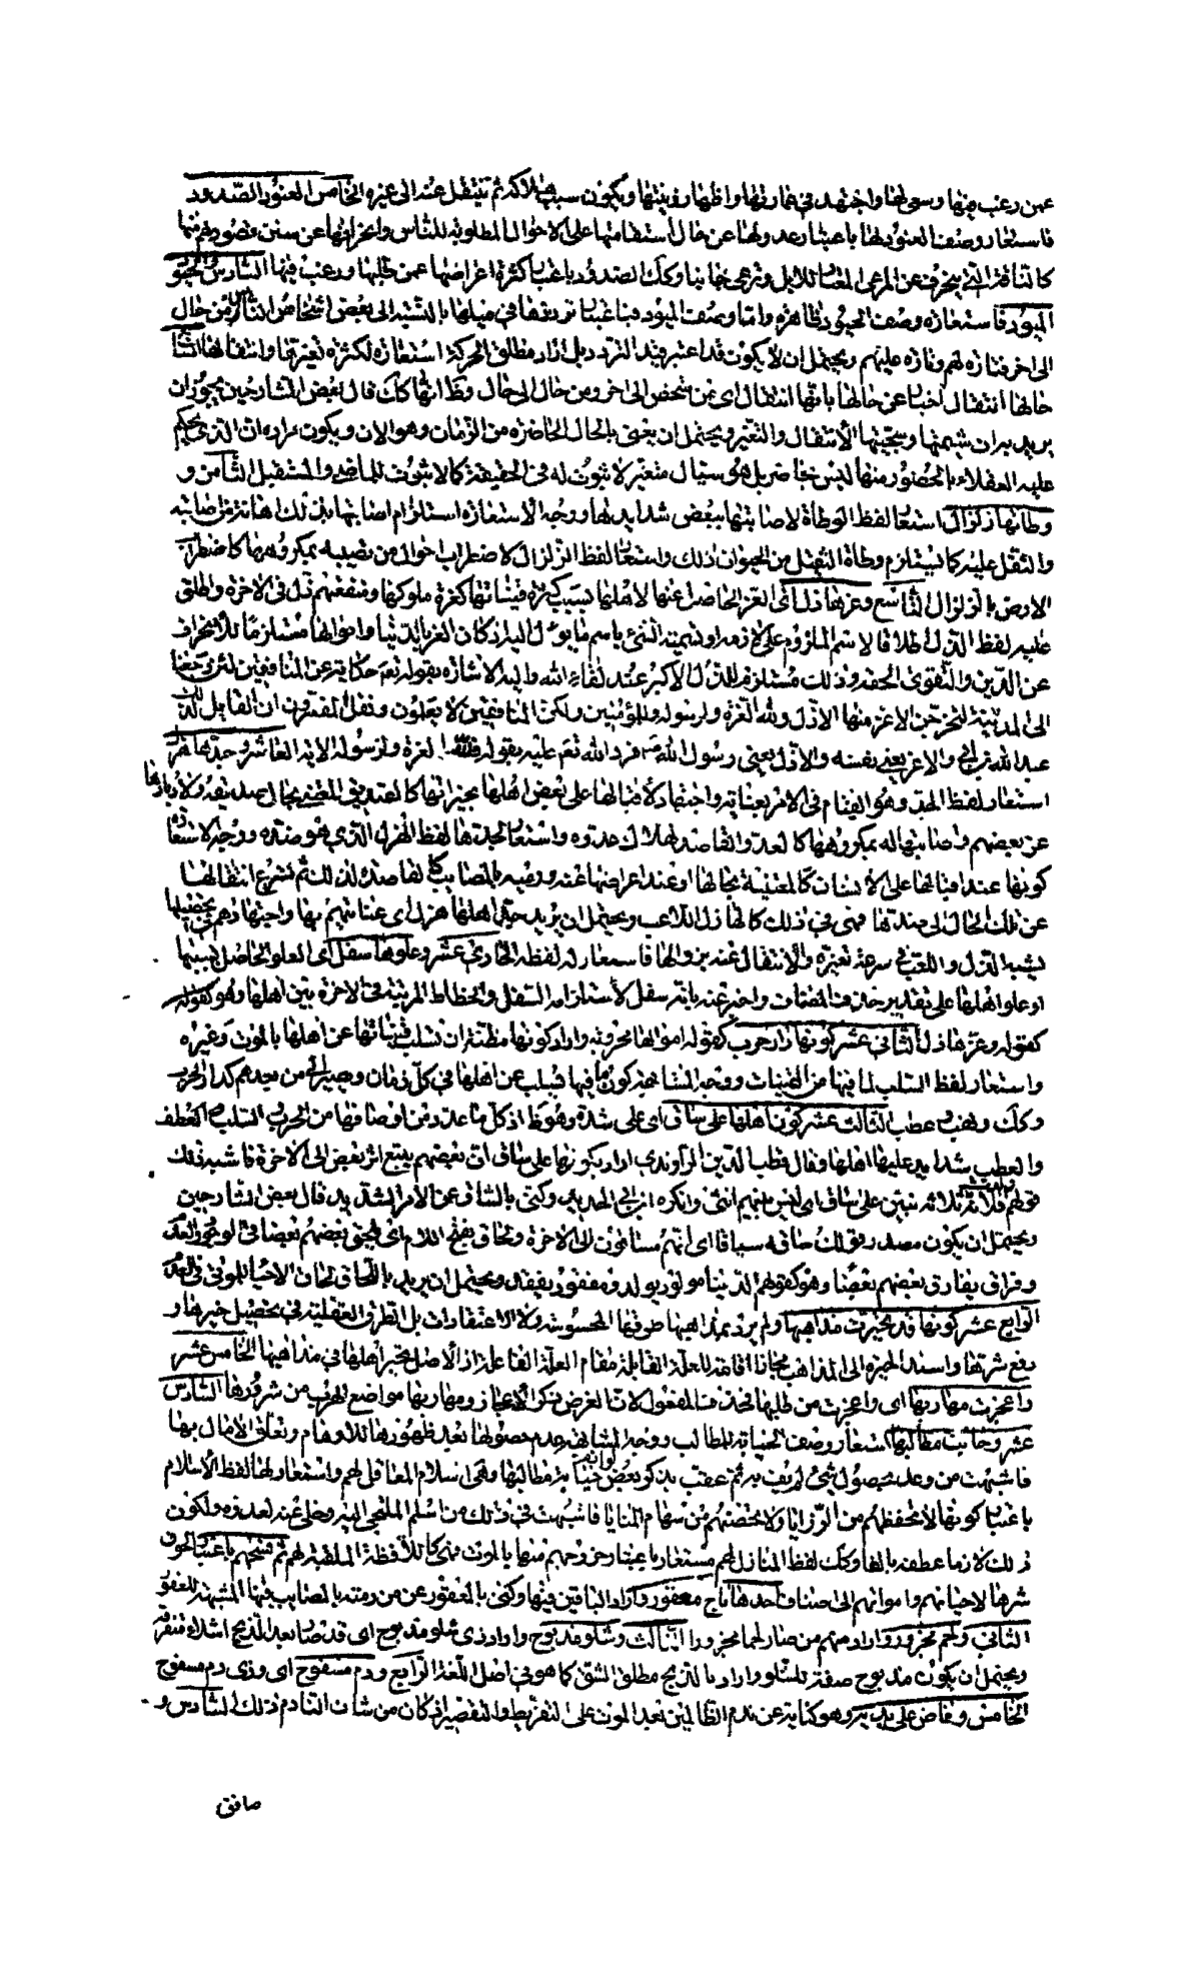 عمن رغب فيها وسعى لها واجتهد في عمارتها واظهار زينتها ويكون سبب هلاكه ثم تنتقل عنه الى غيره الخامس العنود الصدود
فاستعار وصف العنود لها باعتبار عدولها عن حال استقامتها على الاحوال المطلوبة للناس وانحرافها عن سنن قصودهم منها
كالناقة التي تنحرف عن المرعى المعتاد للابل وترعى جانبا وكذلك الصدود باعتبار كثرة اعراضها عمن طلبها ورغب فيها السادس الحيود
الميود فاستعارة وصف الحيود ظاهرة واما وصف الميود فباعتبار ترددها في ميلها بالنسبة الى بعض اشخاص الناس من حال
الى اخر فتارة لهم وتارة عليهم ويحتمل ان لا يكون قد اعتبر قيد التردد بل اراد مطلق الحركة استعارة لكثرة تغيرتها وانتقالها السابع
حالها انتقال اخبار عن حالها بانها انتقال اى من شخص الى اخر ومن حال الى حال وظ انها كك قال بعض الشارحين يجوز ان
يريد بران شيمتها وسجيتها الانتقال والتغير ويحتمل ان يعني بالحال الحاضرة من الزمان وهو الان ويكون مراده ان الذي يحكم
عليه العقلاء بالحضور منها ليس بحاضر بل هو سيال متغير لا ثبوت له في الحقيقة كما لا ثبوت للماضي والمستقبل الثامن و
وطاتها زلزال استعار لفظ الوطاة لاصابتها ببعض شدايدها ووجه الاستعارة استلزام اصابتها بذلك اهانة من اصابته
والثقل عليه كما يستلزم وطاة الثقيل من الحيوان ذلك واستعار لفظ الزلزال لاضطراب احوال من تصيبه بمكروهها كاضطراب
الارض بالزلزال التاسع وعزها ذل اى العز الحاضر عنها لاهلها بسبب كثرة قيناتها كعزة ملوكها ومنفعتهم ذل في الاخرة واطلق
عليه لفظ الذل اطلاقا لاسم الملزوم على لازمه او تسمية الشئ باسم ما يؤل اليه اذ كان العز بالدنيا واموالها مستلزما للانحراف
عن الدين والتقوى الحقة وذلك مستلزم للذل الاكبر عند لقاء الله واليه الاشارة بقوله تعم حكاية عن المنافقين لئن رجعنا
الى المدينة ليخرجن الاعز منها الاذل ولله العزة ولرسوله وللمؤمنين ولكن المنافقين لا يعلمون ونقل المفسرون ان القايل لذلك
عبد الله بن ابي والاعز يعني نفسه والاذل يعني رسول الله ص فرد الله تعم عليه بقوله فلله العزة ولرسوله الاية العاشر وجدها هزل
استعار لفظ الجد وهو القيام في الامر بعناية واجتهاد لاقبالها على بعض اهلها بخيراتها كالصديق المعتني بحال صديقه ولادبارها
عن بعضهم واصابتها له بمكروهها كالعدو القاصد لهلاك عدوه واستعار لجدها لفظ الهزل الذي هو ضده ووجه الاستعارة
كونها عند اقبالها على الانسان كالمعتنية بحاله او عند اعراضها عنه ورميه بالمصايب كالقاصدة لذلك ثم تسرع انتقالها
عن تلك الحال الى ضدها فهي في ذلك كالهازل اللاعب ويحتمل ان يريد جد اهلها هزل اى عنايتهم بها واجتهادهم في تحصيلها
يشبه الهزل واللعب في سرعة تغيره والانتقال عنه بزوالها فاستعار له لفظه الحادي عشر وعلوها سفل اى العلو الحاصل بسببها
او علو اهلها على تقدير حذف المضاف واخبر عنه بانه سفل لاستلزامه السفل وانحطاط المرتبة في الاخرة بين اهلها وهو كقوله
كقوله وعزها ذل الثاني عشر كونها دار حرب كقوله اموالها محروبة واراد كونها مظنة ان تسلب قيناتها عن اهلها بالموت وغيره
واستعار لفظ السلب لما فيها من القينات ووجه المشابهة كون ما فيها يسلب عن اهلها في كل زمان ويصير الى من بعدهم كدار الحرب
وكك ونهب وعطب الثالث عشر كون اهلها على ساق اى على شدة وهو ظ اذ كل ما عدد من اوصافها من الحرب والسلب والعطف
والعطب شدايد عليها اهلها وقال قطب الدين الراوندي اراد بكونها على ساق ان بعضهم يتبع اثر بعض الى الاخرة فاشبه ذلك
قولهم ولدت فلانة ثلاثة بنين على ساق اى ليس بينهم انثى وانكره ابن ابي الحديد وكنى بالساق عن الامر الشديد قال بعض الشارحين
ويحتمل ان يكون مصدر قولك ساقه سياقا اى انهم مساقون الى الاخرة ولحاق بفتح اللام اى يلحق بعضهم بعضا في الوجود والعدم
وفراق يفارق بعضهم بعضا وهو كقولهم الدنيا مولود يولد ومفقود يفقد ويحتمل ان يريد باللحاق لحاق الاحياء للموتى في العدم
الرابع عشر كونها قد تحيرت مذاهبها ولم يرد بمذاهبها طرقها المحسوسة ولا الاعتقادات بل الطرق العقلية في تحصيل خيرها و
دفع شرها واسند الحيرة الى المذاهب مجازا اقامة للعلة القابلة مقام العلة الفاعلة اذ الاصل تحير اهلها في مذاهبها الخامس عشر
واعجزت مهاربها اى واعجزت من طلبها فحذف المفعول لان الغرض ذكر الاعجاز ومهاربها مواضع الهرب من شرورها السادس
عشر وخابت مطالبها استعار وصف الخيابة للمطالب ووجه المشابهة عدم حصولها بعد ظهورها للاوهام وتعلق الامال بها
فاشبهت من وعد بحصول شئ لم يف به ثم عقب بذكر بعض لوازم خيابة مطالبها وهى اسلام المعاقل لهم واستعار لها لفظ الاسلام
باعتبار كونها لا تحفظهم من الرزايا ولا تحصنهم من سهام المنايا فاشبهت في ذلك من اسلم الملتجي اليه وخلى عنه لعدوه ولكون
ذلك لازما عطفه بالفاء وكك لفظ المنازل لهم مستعار باعتبار خروجهم منها بالموت فهى كاللافظة الملقية لهم ثم قسمهم باعتبار لحوق
شرها لاحيائهم وامواتهم الى اصناف احدها ناج معقور واراد الباقين فيها وكنى بالمعقور عن من رمته بالمصايب فيها المشبهة للعقر
الثاني ولحم مجزور واراد منهم من صار لحما مجزورا الثالث وشلو مذبوح واراد ذي شلو مذبوح اى قد صار بعد الذبح اشلاء متفرقة
ويحتمل ان يكون مذبوح صفة للشلو واراد بالذبح مطلق الشق كما هو في اصل اللغة الرابع ودم مسفوح اى وذي دم مسفوح
الخامس وعاض على يديه وهو كناية عن ندم الظالمين بعد الموت على التفريط والتقصير اذ كان من شان النادم ذلك السادس و
صافق